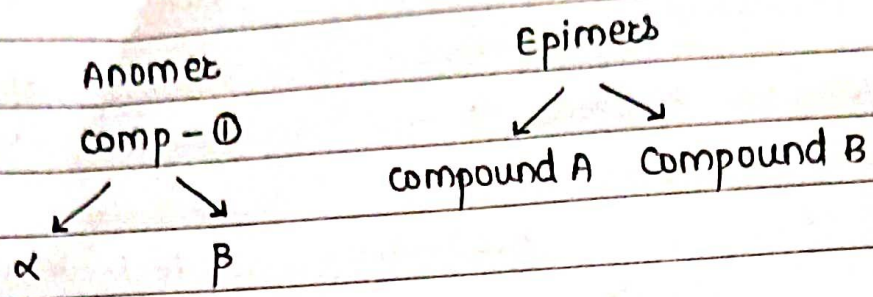 Anomer
comp - ①
α β
Epimers
compound A compound B